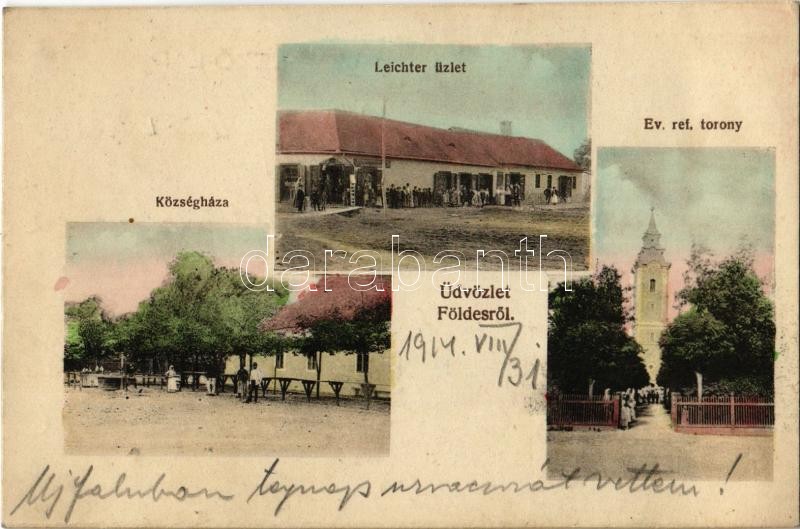 Leichter üzlet
Ev. ref. torony
Községháza
darabanth
Üdvözlet
Földesről.
1914. VIII/31
Ujfaluban tegnap vettem!